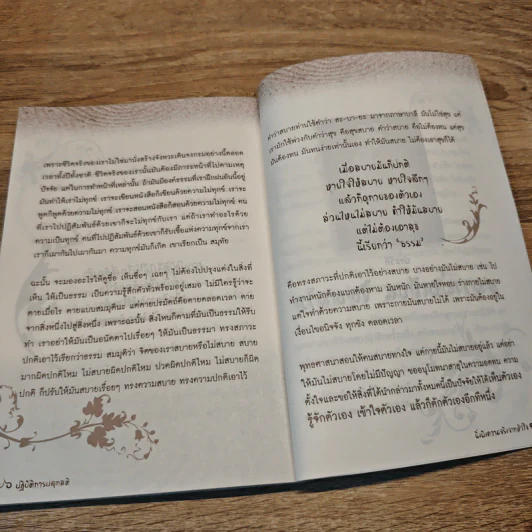 เพราะชีวิตจริงของเราไม่ใช่มานั่งสร้างจังหวะเดินจงกรมอย่างนี้ตลอด
เวลาทั้งปีทั้งชาติ ชีวิตจริงของเรานั้นมันต้องมีภาระหน้าที่ไปตามเหตุ
ปัจจัย แต่ในการทำหน้าที่เหล่านั้น ถ้ามันมีองค์ธรรมที่เราฝึกฝนอันนี้อยู่
มันทำให้เราไม่ทุกข์ เราจะเขียนหนังสือก็เขียนด้วยความไม่ทุกข์ เราจะ
พูดก็พูดด้วยความไม่ทุกข์ เราจะสอนหนังสือก็สอนด้วยความไม่ทุกข์ คน
ที่เราไปปฏิสัมพันธ์ด้วยเขาก็จะไม่ทุกข์กับเรา แต่ถ้าเราทำอะไรด้วย
ความเป็นทุกข์ คนที่ไปปฏิสัมพันธ์ด้วยเขาก็รับเชื้อแห่งความทุกข์จากเรา
เราก็เผากันไปเผากันมา ความทุกข์มันก็เกิด เขาเรียกเป็น สมุทัย
ฉะนั้น จะมองอะไรให้ดูซื่อ เห็นซื่อๆ เฉยๆ ไม่ต้องไปปรุงแต่งในสิ่งที่
เห็น ให้เป็นธรรม เป็นความรู้สึกตัวพร้อมอยู่เสมอ ไม่มีใครรู้ว่าจะ
ตายเมื่อไร ตายแบบสมมุตินะ แต่ตายปรมัตถ์คือตายตลอดเวลา ตาย
จากสิ่งหนึ่งไปสู่สิ่งหนึ่ง เพราะฉะนั้น สิ่งไหนก็ตามที่มันเป็นธรรมให้รีบ
ทำ เราอย่าให้มันเป็นอนัตตาไปเรื่อยๆ ให้มันเป็นธรรมา ทรงสภาวะ
ปกติเอาไว้เรียกว่าธรรม สมมุติว่า จิตของเราสบายหรือไม่สบาย สบาย
มากผิดปกติไหม ไม่สบายผิดปกติไหม ปวดผิดปกติไหม ไม่สบายก็ผิด
ปกติ ก็ปรับให้มันสบายเรื่อยๆ ทรงความสบาย ทรงความปกติเอาไว้
ปฏิบัติการปลุกสติ
คำว่าสบายท่านใช้คำว่า สะ-บา-ยะ มาจากภาษาบาลี มันไม่ใช่สุข แต่
เรามักใช้พ่วงกับคำว่าสุข คือสุขสบาย คำว่าสบาย คือไม่ต้องทน แต่สุข
มันต้องทน มันทนง่ายเท่านั้นเอง ทำให้มันสบาย ไม่ต้องเอาสุขก็ได้
เมื่อสบายมันก็ปกติ
หายใจให้สบาย หายใจลึกๆ
แล้วก็ดูกายของตัวเอง
ส่วนไหนไม่สบาย จักให้มันสบาย
แต่ไม่ต้องเอาสุข
นี่เรียกว่า "ธรรม"
คือทรงสภาวะที่ปกติเอาไว้อย่างสบาย บางอย่างมันไม่สบาย เช่น ไป
ทำงานหนักต้องแบกต้องหาม มันหนัก มันหายใจหอบ ร่างกายไม่สบาย
แต่ใจทำด้วยความสบาย เพราะกายมันสบายไม่ได้ เพราะมันต้องอยู่ใน
เงื่อนไขอนิจจัง ทุกขัง ตลอดเวลา
พุทธศาสนาสอนให้คนสบายทางใจ แต่กายนี้มันไม่สบายอยู่แล้ว แต่อย่า
ให้มันไม่สบายโดยไม่มีปัญญา ขออนุโมทนาสาธุในความอดทน ความ
ตั้งใจและขอให้สิ่งที่ได้นำกล่าวมาทั้งหมดนี้เป็นปัจจัยให้ได้เห็นตัวเอง
รู้จักตัวเอง เข้าใจตัวเอง แล้วก็ตักตัวเองอีกทีหนึ่ง